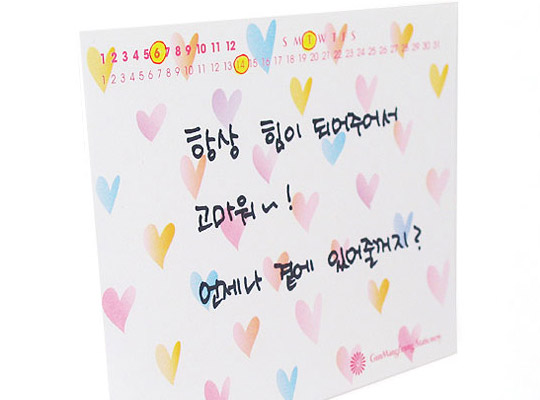 1 2 3 4 5 6 7 8 9 10 11 12 S M T W T F S
1 2 3 4 5 6 7 8 9 10 11 12 13 14 15 16 17 18 19 20 21 22 23 24 25 26 27 28 29 30 31
항상 힘이 되어주어서
고마워~!
언제나 곁에 있어줄꺼지?